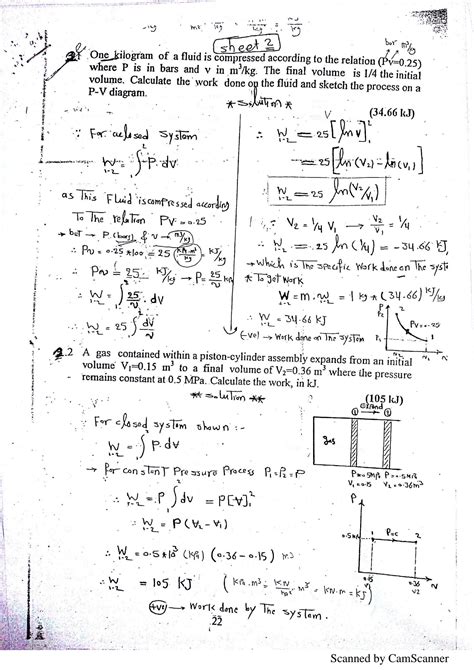 Sheet 2
bar m³/kg
One kilogram of a fluid is compressed according to the relation (Pv=0.25)
where P is in bars and v in m³/kg. The final volume is 1/4 the initial
volume. Calculate the work done on the fluid and sketch the process on a
P-V diagram.
(34.66 kJ)
* Solution *
∵ For a closed system
W₁₋₂ = ∫ P. dV
as This Fluid is compressed according
To The relation PV = 0.25
but → P (bars) & v → m³/kg
∴ Pv = 0.25 * 100 = 25 kPa.m³/kg = kJ/kg
∴ Pv = 25 kJ/kg → P = 25/v kPa
∴ W₁₋₂ = ∫₁² 25/v . dv
∴ W₁₋₂ = 25 ∫₁² dv/v
∴ W₁₋₂ = 25 [ln v]₁²
= 25 [ln(v₂) - ln(v₁)]
W₁₋₂ = 25 ln(V₂/V₁)
∵ V₂ = 1/4 V₁ → V₂/V₁ = 1/4
∴ W₁₋₂ = 25 ln(1/4) = -34.66 kJ/
→ which is The specific work done on The syste
* To get work
W = m . w₁₋₂ = 1 kg * (34.66) kJ/kg
∴ W₁₋₂ = 34.66 kJ
(-ve) → work done on The system
P
P₂
2
PV=0.25
P₁
1
2.2 A gas contained within a piston-cylinder assembly expands from an initial
volume V₁=0.15 m³ to a final volume of V₂=0.36 m³ where the pressure
remains constant at 0.5 MPa. Calculate the work, in kJ.
(105 kJ)
** Solution **
For closed system shown :-
W₁₋₂ = ∫₁² P. dV
→ for constant Pressure Process P₁ = P₂ = P
∴ W₁₋₂ = P ∫₁² dV = P[V]₁²
∴ W₁₋₂ = P (V₂ - V₁)
∴ W₁₋₂ = 0.5 * 10³ (kPa) (0.36 - 0.15) m³
∴ W₁₋₂ = 105 kJ (kPa.m³ = kN/m² . m³ = kN.m = kJ)
(+ve) → work done by The system.
gas
① ②
P=0.5MPa P=0.5MPa
V₁=0.15 V₂=0.36m³
P
1 P=c 2
0.15 0.36
V₁ V₂
V
22
Scanned by CamScanner